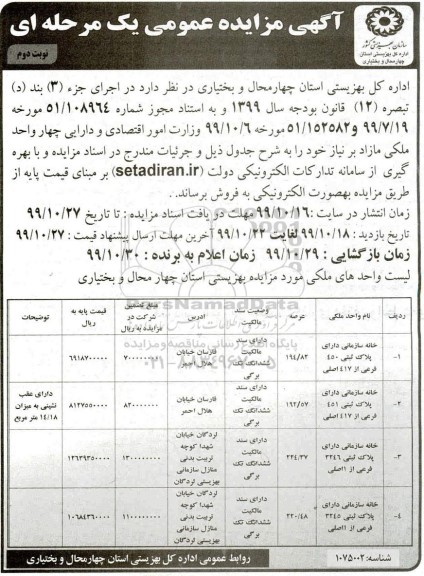 آگهی مزایده عمومی یک مرحله ای
نوبت دوم
سازمان بهزیستی کشور
اداره کل بهزیستی استان
چهارمحال و بختیاری
اداره کل بهزیستی استان چهارمحال و بختیاری در نظر دارد در اجرای جزء (۳) بند (د)
تبصره (۱۲) قانون بودجه سال ۱۳۹۹ و به استناد مجوز شماره ۵۱/۱۰۸۹۶۴ مورخه
۹۹/۷/۱۹ و ۵۱/۱۵۲۵۸۲ مورخه ۹۹/۱۰/۶ وزارت امور اقتصادی و دارایی چهار واحد
ملکی مازاد بر نیاز خود را به شرح جدول ذیل و جزئیات مندرج در اسناد مزایده و با بهره
گیری از سامانه تدارکات الکترونیکی دولت (setadiran.ir) بر مبنای قیمت پایه از
طریق مزایده بهصورت الکترونیکی به فروش برساند.
زمان انتشار در سایت : ۹۹/۱۰/۱۶ مهلت دریافت اسناد مزایده : تا تاریخ ۹۹/۱۰/۲۷
تاریخ بازدید : ۹۹/۱۰/۱۸ لغایت ۹۹/۱۰/۲۲ آخرین مهلت ارسال پیشنهاد قیمت : ۹۹/۱۰/۲۷
زمان بازگشایی : ۹۹/۱۰/۲۹ زمان اعلام به برنده : ۹۹/۱۰/۳۰
لیست واحد های ملکی مورد مزایده بهزیستی استان چهار محال و بختیاری
ردیف نام واحد ملکی عرصه وضعیت سند مالکیت آدرس مبلغ تضمین شرکت در مزایده به ریال قیمت پایه به ریال توضیحات
۱- خانه سازمانی دارای پلاک ثبتی ۴۵۰ فرعی از ۴۱۷ اصلی ۱۹۴/۸۲ دارای سند مالکیت ششدانگ تک برگی فارسان خیابان هلال احمر ۷۰۰۰۰۰۰۰۰ ۶۹۱۸۷۰۰۰۰۰
۲- خانه سازمانی دارای پلاک ثبتی ۴۵۱ فرعی از ۴۱۷ اصلی ۱۹۲/۵۷ دارای سند مالکیت ششدانگ تک برگی فارسان خیابان هلال احمر ۸۲۰۰۰۰۰۰۰ ۸۱۲۷۵۵۰۰۰۰ دارای عقب نشینی به میزان ۱۴/۱۸ متر مربع
۳- خانه سازمانی دارای پلاک ثبتی ۳۲۴۶ فرعی از ۱ اصلی ۲۲۴/۳۷ دارای سند مالکیت ششدانگ تک برگی لردگان خیابان شهدا کوچه تربیت بدنی منازل سازمانی بهزیستی لردگان ۱۳۰۰۰۰۰۰۰۰ ۱۲۶۳۹۳۵۰۰۰۰
۴- خانه سازمانی دارای پلاک ثبتی ۳۲۴۵ فرعی از ۱ اصلی ۲۲۰/۴۸ دارای سند مالکیت ششدانگ تک برگی لردگان خیابان شهدا کوچه تربیت بدنی منازل سازمانی بهزیستی لردگان ۱۱۰۰۰۰۰۰۰۰ ۱۰۶۸۴۳۶۰۰۰۰
شناسه: ۱۰۷۵۰۰۲
روابط عمومی اداره کل بهزیستی استان چهارمحال و بختیاری